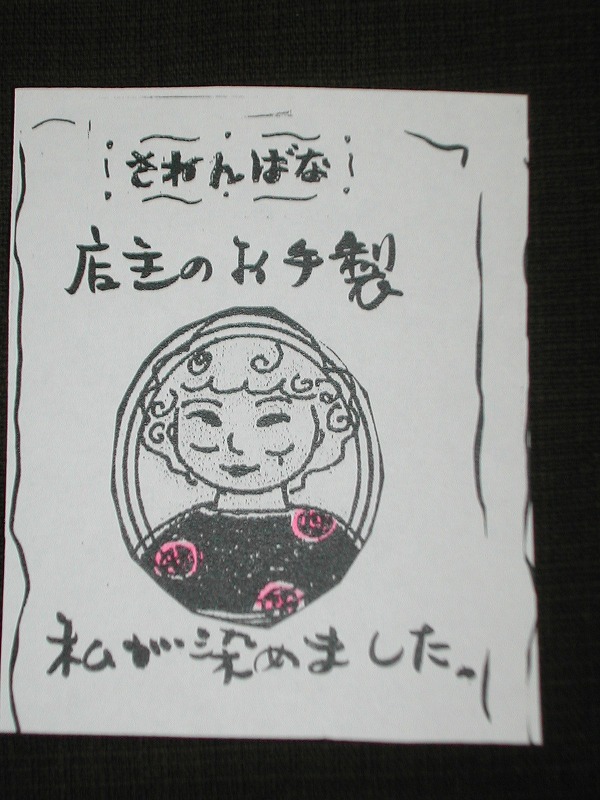 されんばな
店主のお手製
私が染めました。